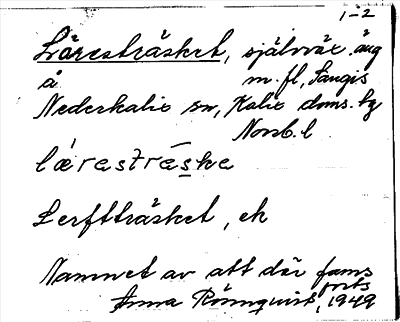 1-2
Läresträsket, självväx äng
å m. fl, Sangis
Nederkalix sn, Kalix doms. hg
Norrb. l
lǽrestrǽske
Lerftträsket, ek
Namnet av att där fanns
forts
Anna Rönnquist, 1949